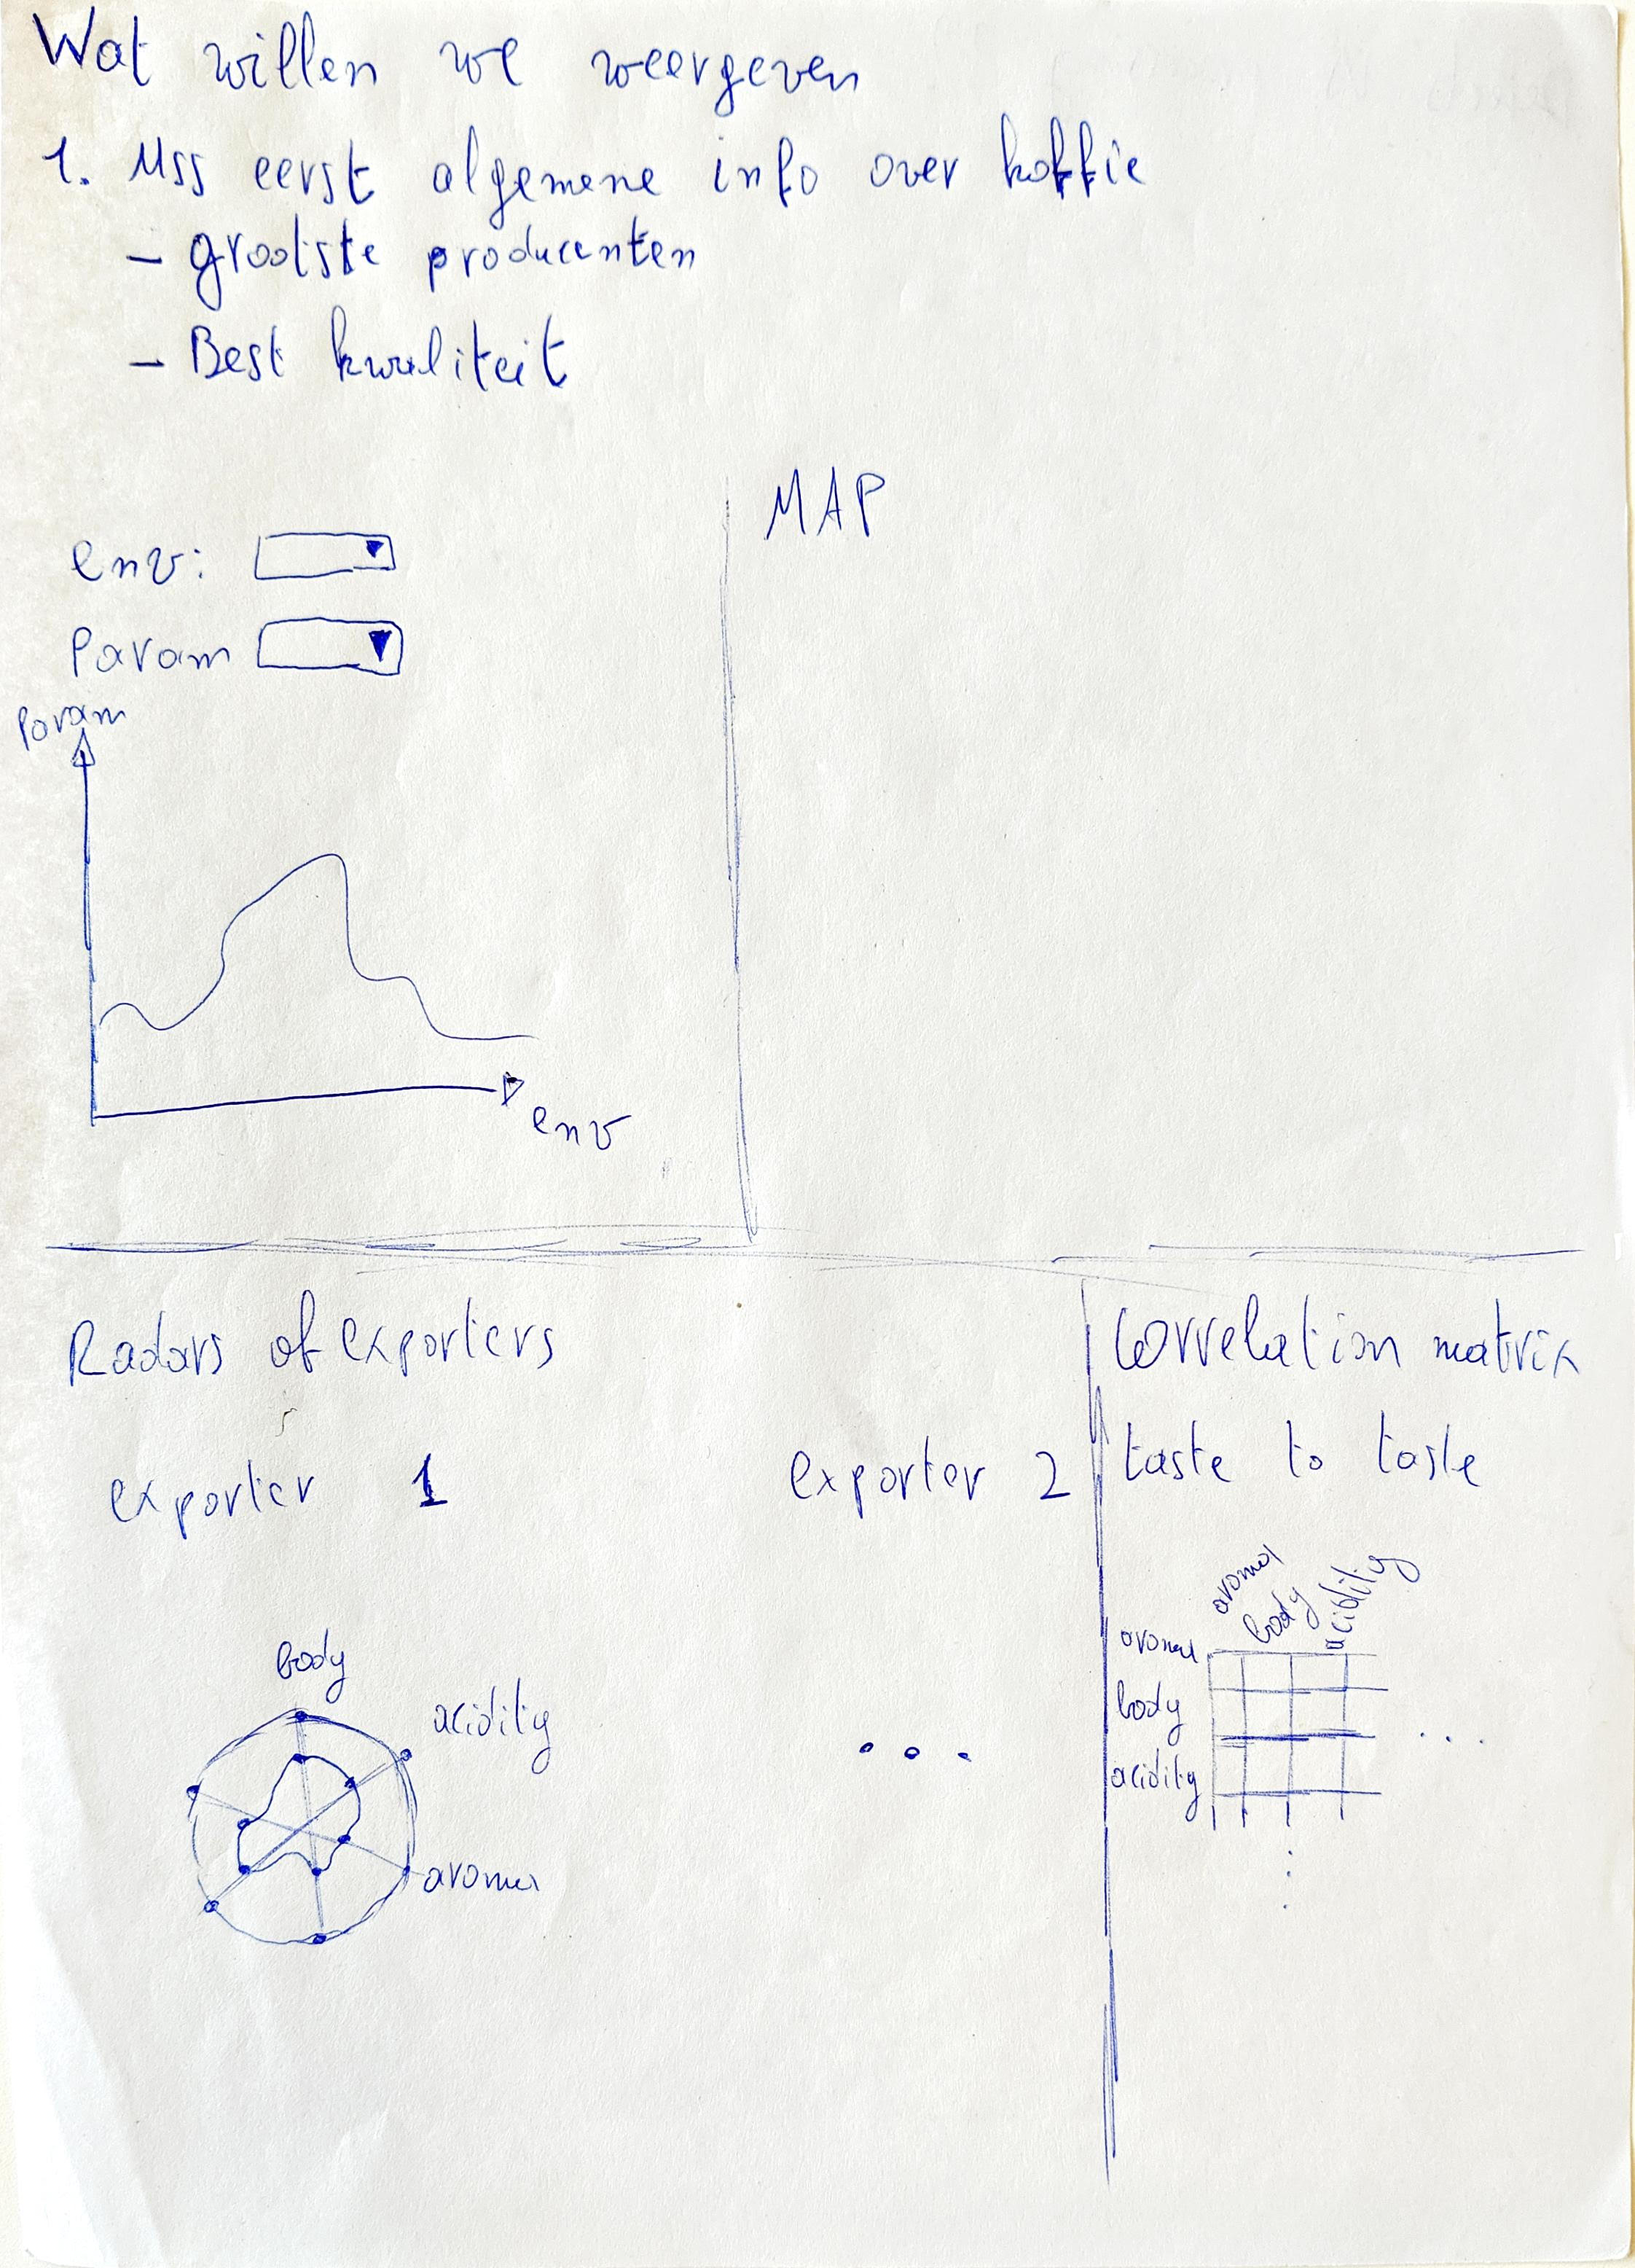 Wat willen we weergeven
1. Mss eerst algemene info over koffie
- grootste producenten
- Best kwaliteit
env:
Param
Param
env
MAP
Radars of exporters
exporter 1
exporter 2
body
acidity
aroma
...
Correlation matrix
taste to taste
aroma
body
acidity
aroma
body
acidity
...